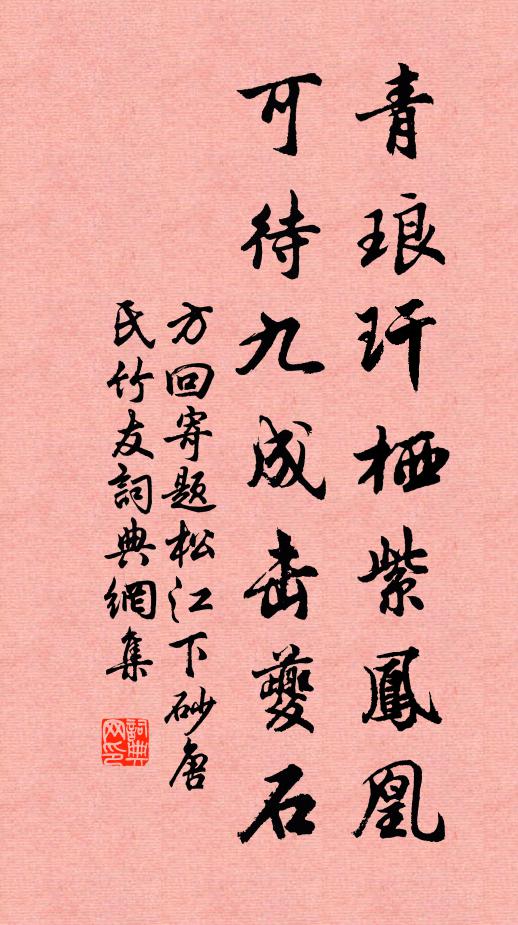 青琅玕栖紫鳳凰
可待九成击夔石
方回寄题松江下砂唐
氏竹友詞典網集
詞典網印